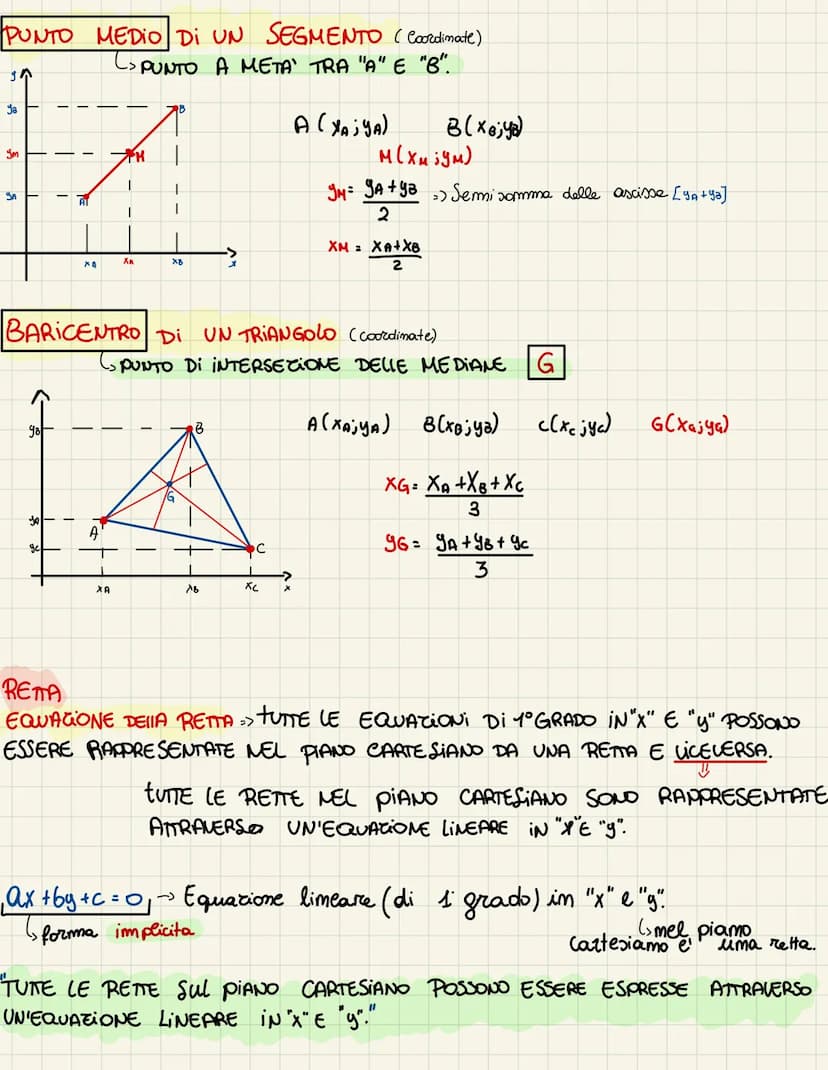 PUNTO MEDIO DI UN SEGMENTO (Coordinate)
↳ PUNTO A META' TRA "A" E "B".
y
yB
B
yM
M
yA
A
xA xM xB x
A(xA;yA) B(xB;yB)
M(xM;yM)
yM = yA+yB / 2 => Semisomma delle ascisse [yA+yB]
xM = xA+xB / 2
BARICENTRO DI UN TRIANGOLO (coordinate)
↳ PUNTO DI INTERSEZIONE DELLE MEDIANE G
yB
B
G
yA
A
yC
C
xA xB xC x
A(xA;yA) B(xB;yB) C(xC;yC) G(xG;yG)
xG = xA+xB+xC / 3
yG = yA+yB+yC / 3
RETTA
EQUAZIONE DELLA RETTA => TUTTE LE EQUAZIONI DI 1° GRADO IN "X" E "y" POSSONO
ESSERE RAPPRESENTATE NEL PIANO CARTESIANO DA UNA RETTA E VICEVERSA.
TUTTE LE RETTE NEL PIANO CARTESIANO SONO RAPPRESENTATE
ATTRAVERSO UN'EQUAZIONE LINEARE IN "X" E "y".
ax+by+c=0 → Equazione lineare (di 1° grado) in "x" e "y".
↳ forma implicita
↳ nel piano
cartesiano e' una retta.
"TUTTE LE RETTE SUL PIANO CARTESIANO POSSONO ESSERE ESPRESSE ATTRAVERSO
UN'EQUAZIONE LINEARE IN "X" E "y"."